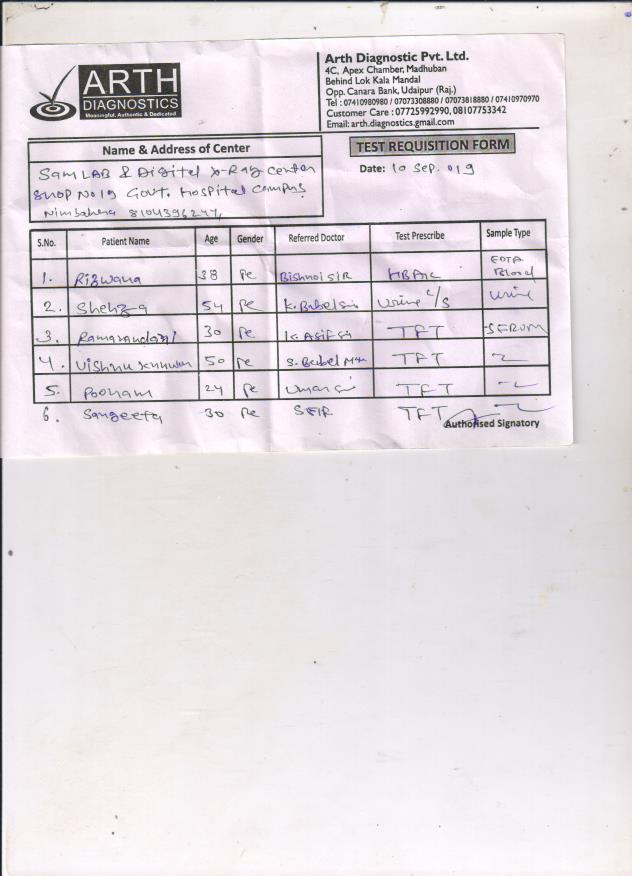 ARTH
DIAGNOSTICS
Meaningful, Authentic & Dedicated
Arth Diagnostic Pvt. Ltd.
4C, Apex Chamber, Madhuban
Behind Lok Kala Mandal
Opp. Canara Bank, Udaipur (Raj.)
Tel : 07410980980 / 07073308880 / 07073818880 / 07410970970
Customer Care : 07725992990, 08107753342
Email: arth.diagnostics.gmail.com
Name & Address of Center
TEST REQUISITION FORM
Sam LAB & Digital X-Ray Center
Shop No 19 Govt. Hospital Campus
Date: 10 Sep. 019
S.No. Patient Name Age Gender Referred Doctor Test Prescribe Sample Type
1. Rizwana 38 Bishnoi SIR HBA1c EDTA Blood
2. 54 Urine C/S Urine
3. 30 TFT SERUM
4. 50 TFT
5. Poonam 24 TFT
6. Sangeeta 30 TFT
Authorised Signatory